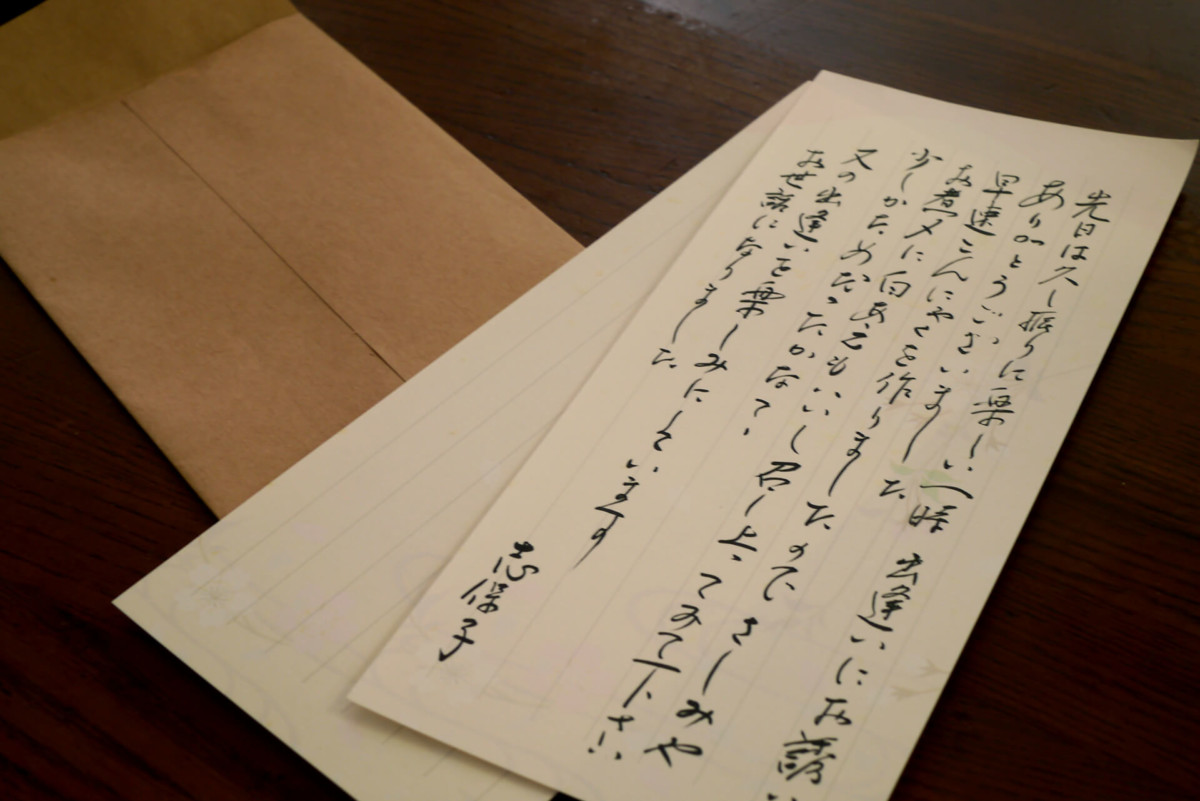 先日は久し振りに楽しい一時 出逢いにお誘い
ありがとうございました
早速こんにゃくを作りましたので さしみや
お煮〆に白あえもいいし 召し上ってみて下さい
少しかためだったかなて、
又の出逢いを楽しみにしています
お世話になりました
志保子